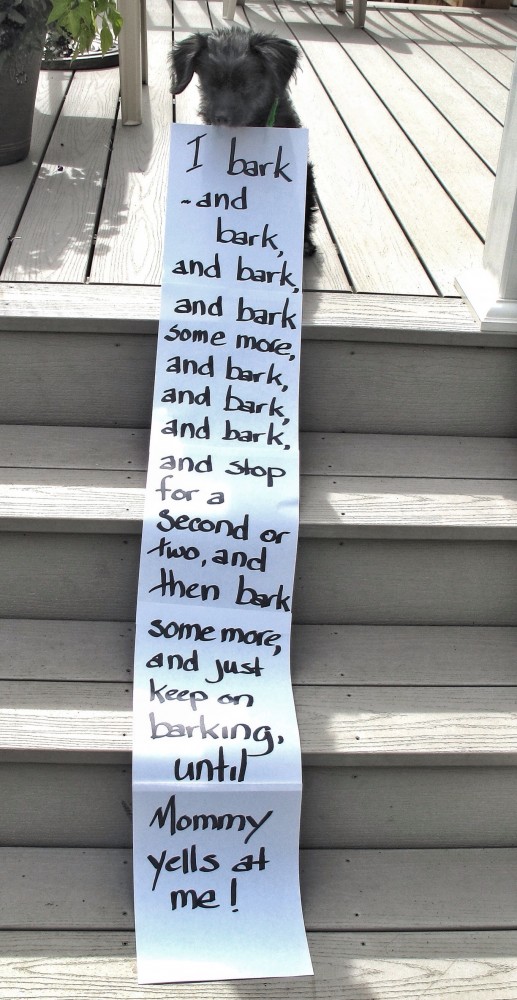 I bark
-and
bark,
and bark,
and bark
some more,
and bark,
and bark,
and bark,
and stop
for a
second or
two, and
then bark
some more,
and just
keep on
barking,
until
Mommy
yells at
me!